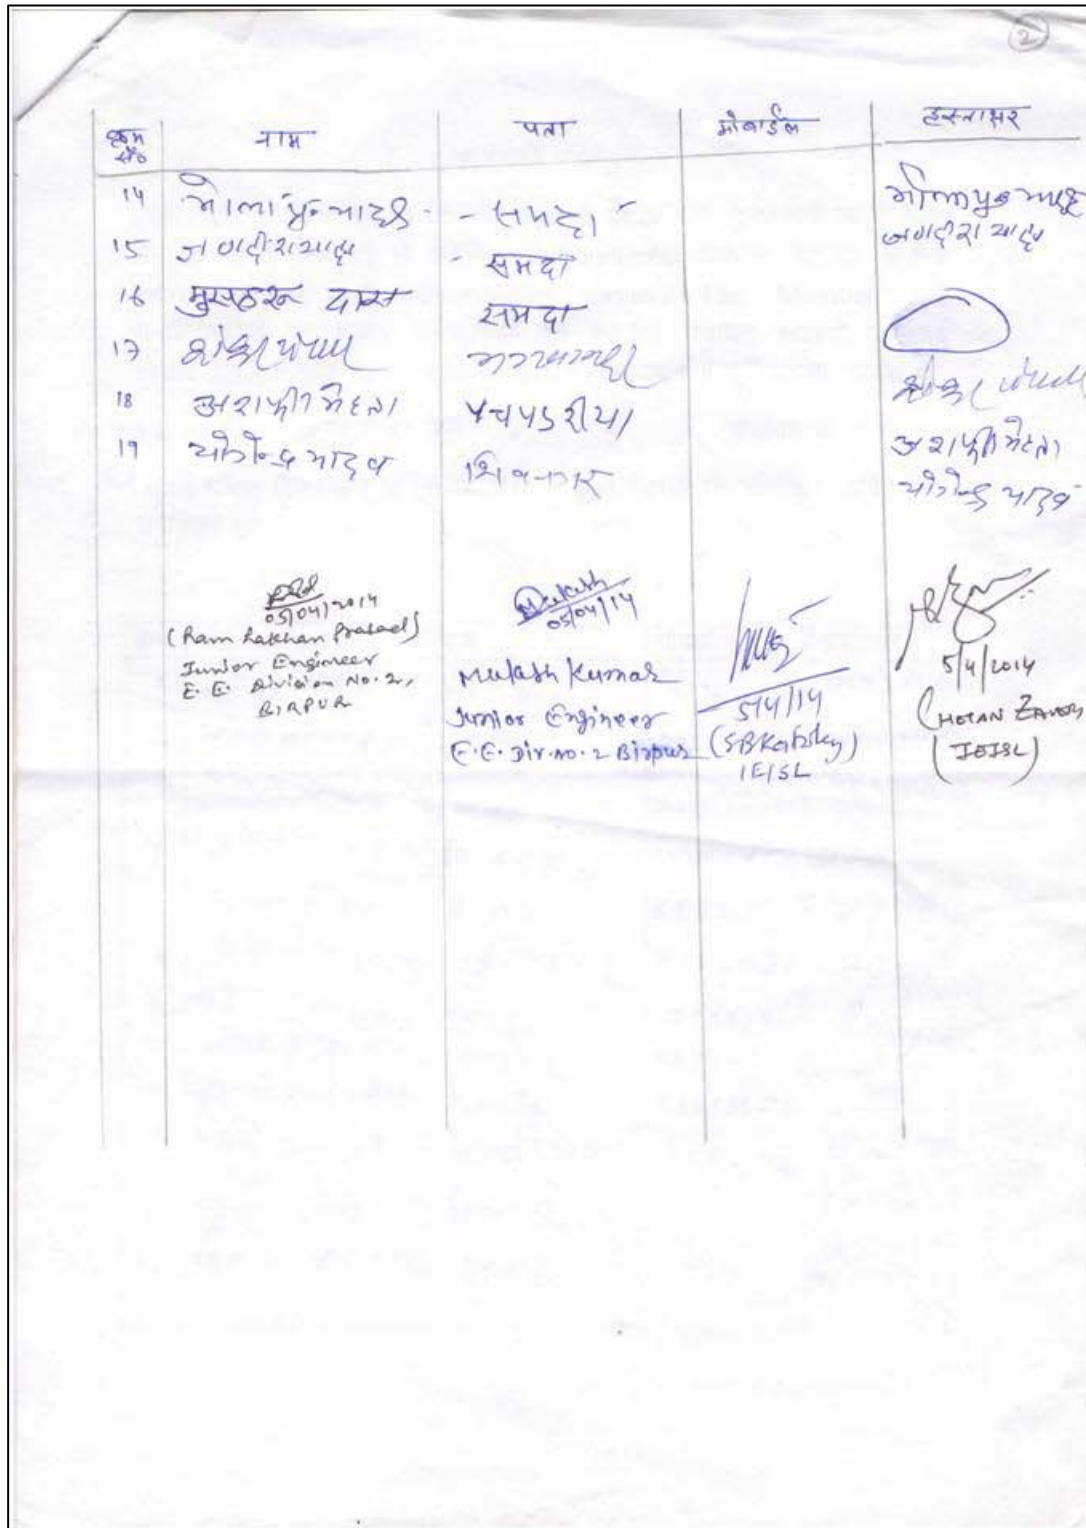 2
क्रम सं० नाम पता मोबाईल हस्ताक्षर
14 भोला प्र० यादव - समदा भोला प्र० यादव
15 जगदीश यादव - समदा जगदीश यादव
16 मुसहरू दास समदा
17
18 अशर्फी मेहता पचपडरीया अशर्फी मेहता
19 योगेन्द्र यादव शिवनगर योगेन्द्र यादव
05/04/2014
(Ram Lakhan Prasad)
Junior Engineer
E. E. Division No. 2,
BIRPUR
Mukesh
05/04/14
Mukesh Kumar
Junior Engineer
E. E. Div. no. 2 Birpur
5/4/14
IEISL
5/4/2014
(IEISL)